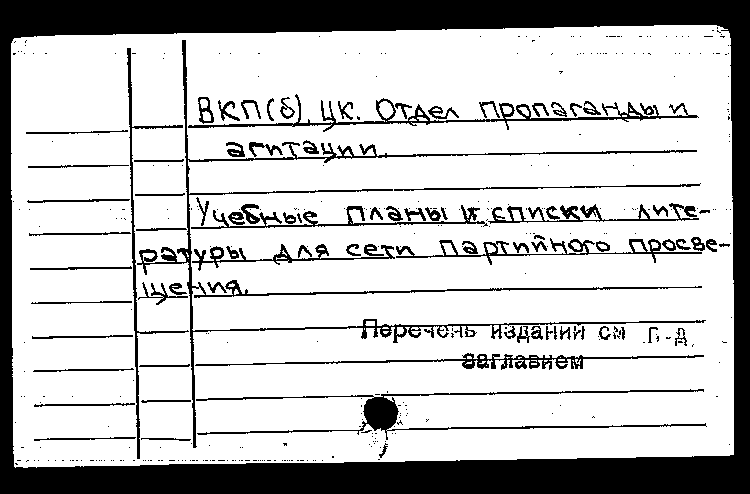 ВКП(б). ЦК. Отдел пропаганды и
агитации.
Учебные планы и списки лите-
ратуры для сети партийного просве-
щения.
Перечень изданий см п-д
заглавием